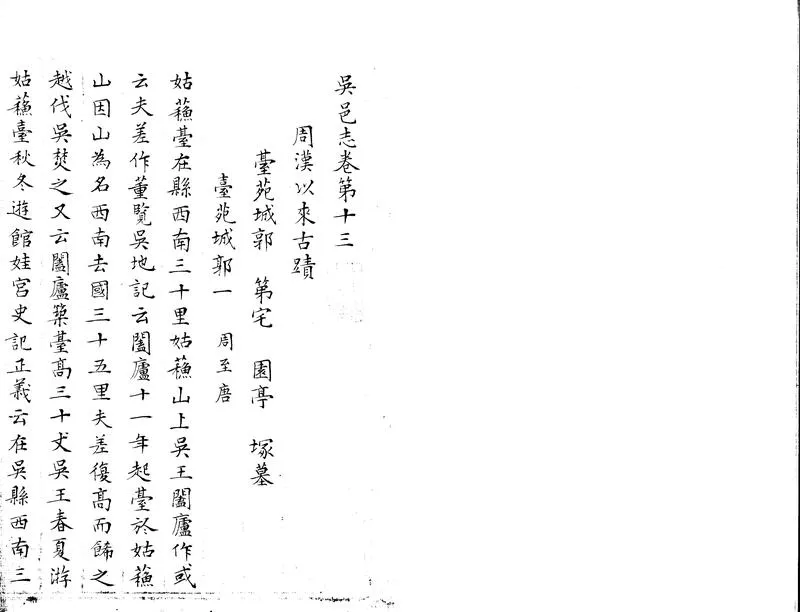 吳邑志卷第十三
周漢以來古蹟
臺苑城郭　第宅　園亭　塚墓
臺苑城郭一　周至唐
姑蘓臺在縣西南三十里姑蘓山上吳王闔廬作或
云夫差作董覽吳地記云闔廬十一年起臺於姑蘓
山因山為名西南去國三十五里夫差復高而餙之
越伐吳焚之又云闔廬築臺高三十丈吳王春夏游
姑蘓臺秋冬遊館娃宮史記正義云在吳縣西南三